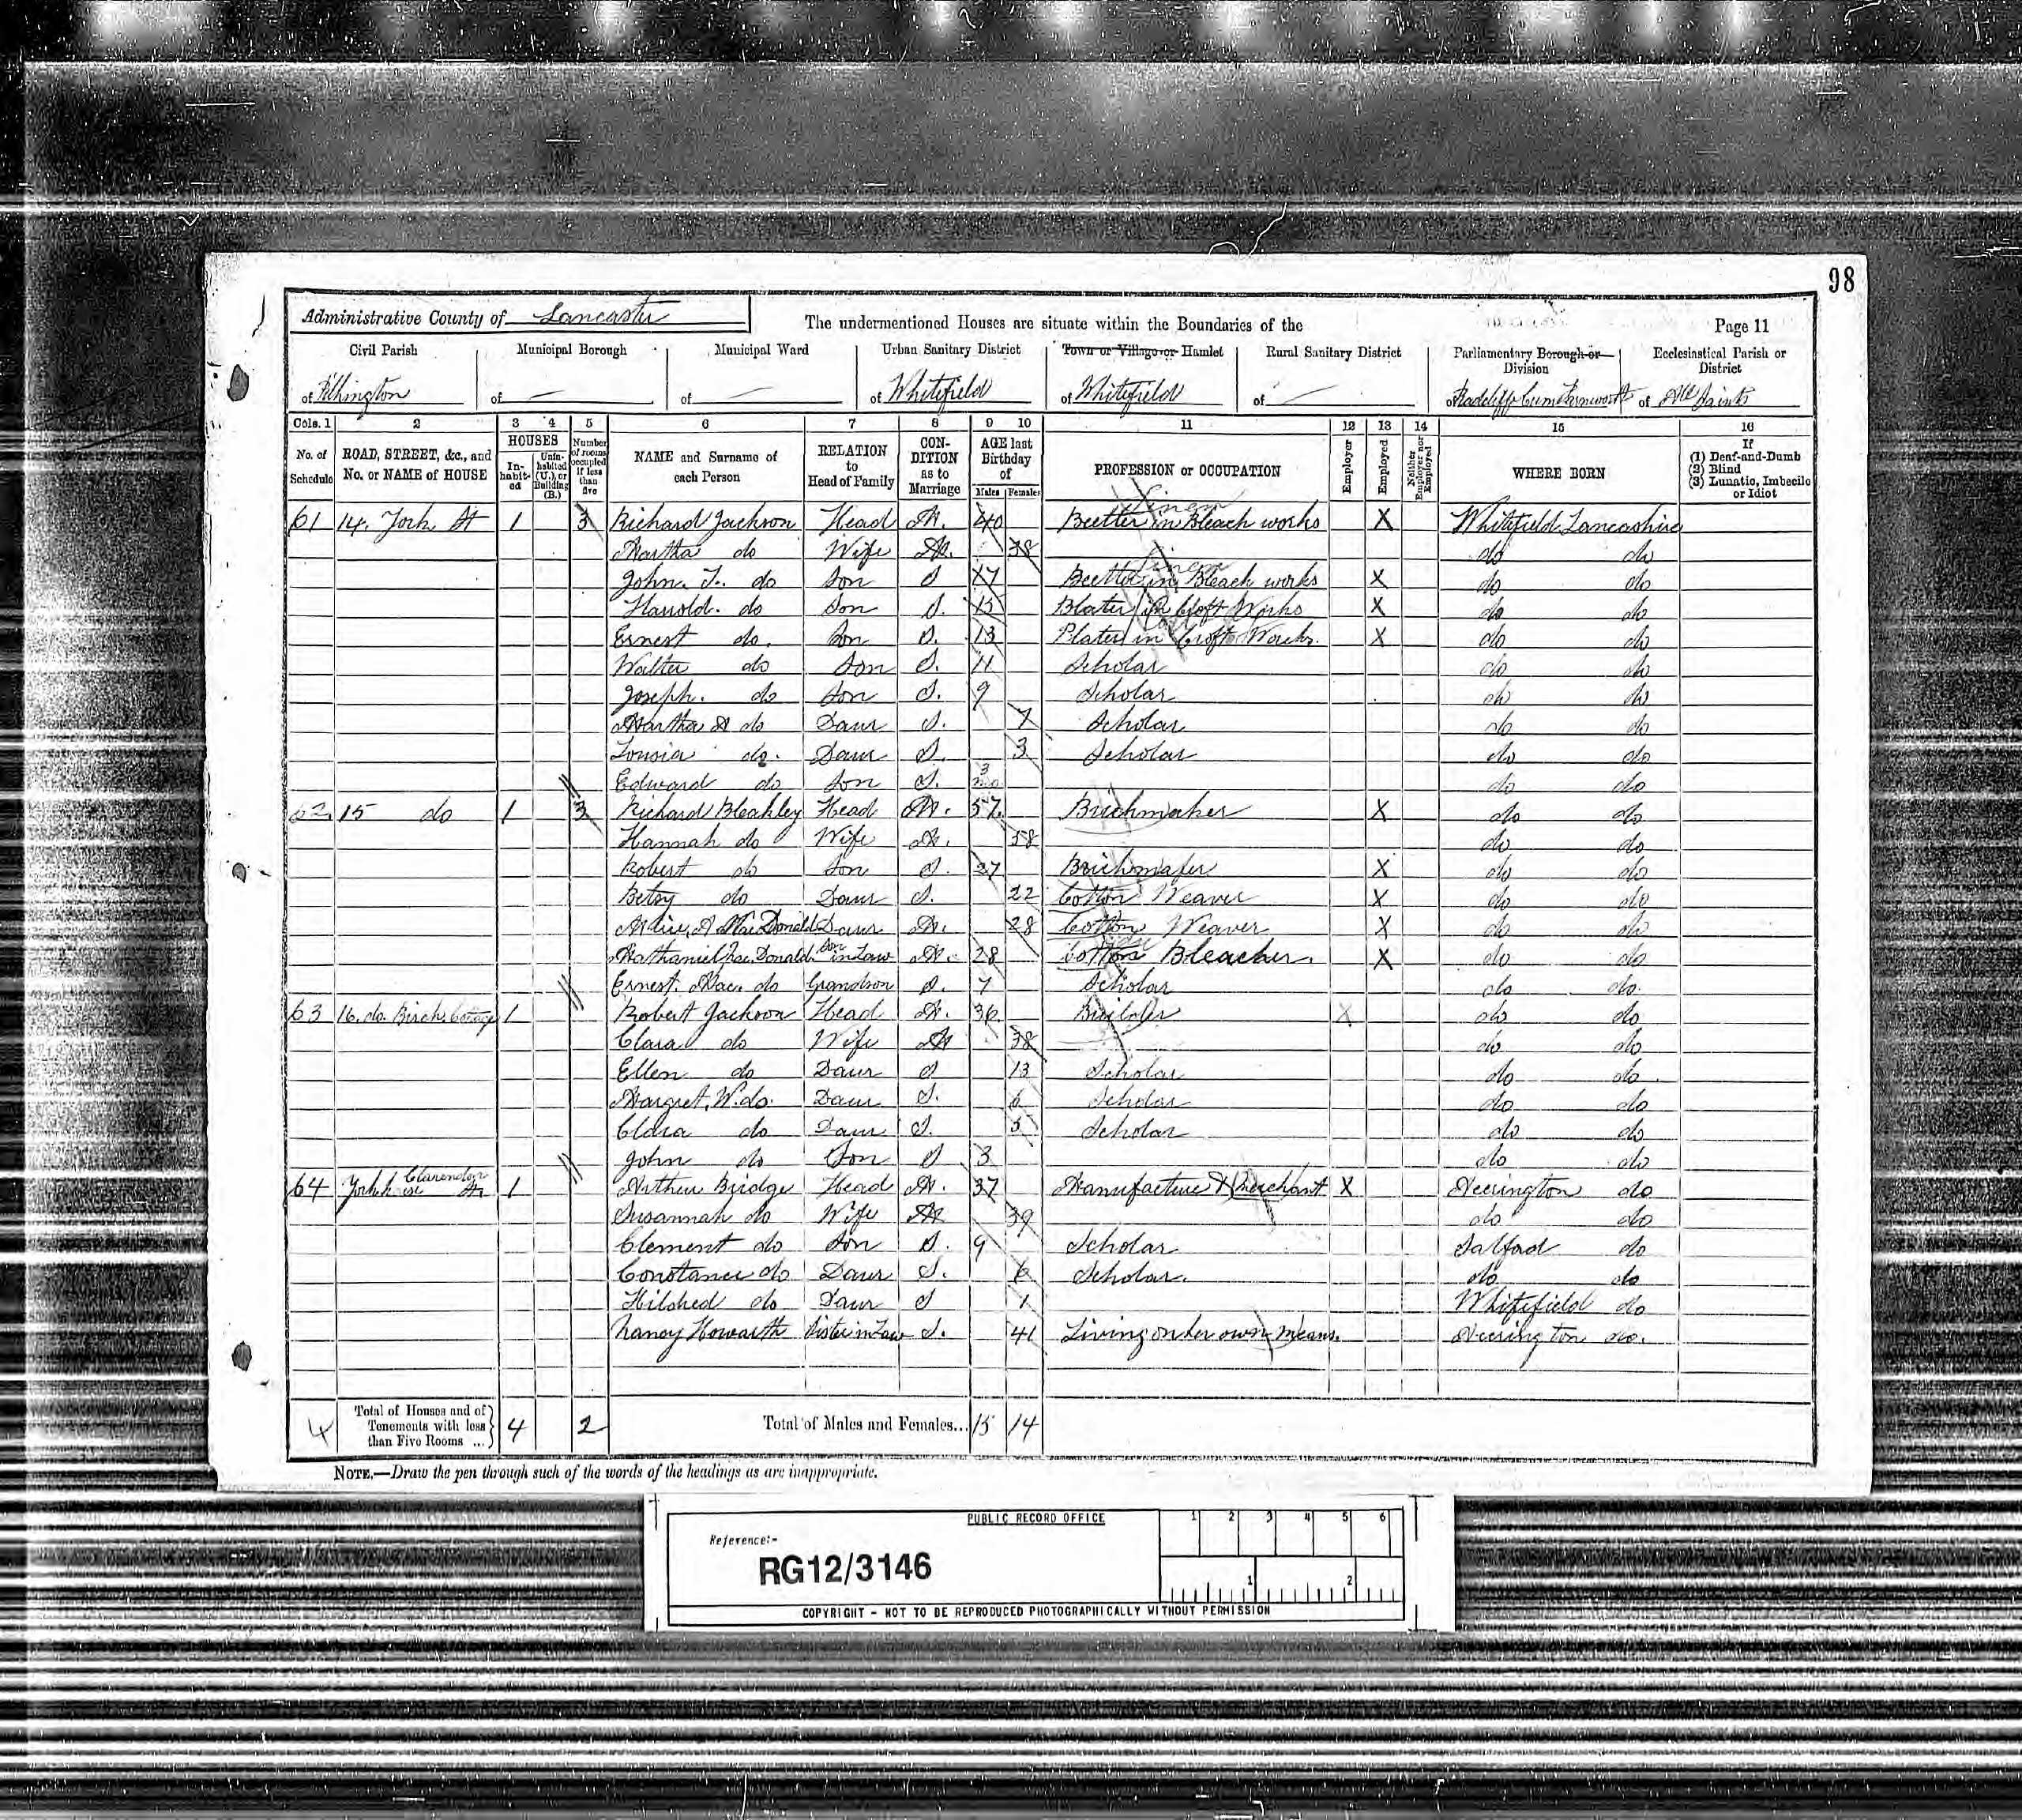 98
Administrative County of Lancaster
The undermentioned Houses are situate within the Boundaries of the
Page 11
Civil Parish
Municipal Borough
Municipal Ward
Urban Sanitary District
Town or Village or Hamlet
Rural Sanitary District
Parliamentary Borough or Division
Ecclesiastical Parish or District
of Pilkington
of —
of —
of Whitefield
of Whitefield
of —
of Radcliffe cum Farnworth
of All Saints
Cols. 1 2 3 4 5 6 7 8 9 10 11 12 13 14 15 16
No. of Schedule
ROAD, STREET, &c., and No. or NAME of HOUSE
HOUSES
Inhabited
Uninhabited (U.), or Building (B.)
Number of rooms occupied if less than five
NAME and Surname of each Person
RELATION to Head of Family
CONDITION as to Marriage
AGE last Birthday of
Males Females
PROFESSION or OCCUPATION
Employer
Employed
Neither Employer nor Employed
WHERE BORN
If (1) Deaf-and-Dumb (2) Blind (3) Lunatic, Imbecile or Idiot
Linen
61 14. York St 1 3 Richard Jackson Head M. 40 Beetler in Bleach works X Whitefield Lancashire
Martha do Wife M. 38 do do
Linen
John T. do Son S 17 Beetler in Bleach works X do do
Harrold. do Son S. 15 in Croft Works X do do
Ernest do. Son S. 13 Plater in Croft Works. X do do
Walter do Son S. 11 Scholar do do
Joseph. do Son S. 9 Scholar do do
Martha A do Daur S. 7 Scholar do do
Lousia do. Daur S. 3 Scholar do do
Edward do Son S. 3 mo do do
62. 15 do 1 3 Richard Bleakley Head M. 57. Brickmaker X do do
Hannah do Wife M. 58 do do
Robert do Son S. 27 Brickmaker X do do
Betsy do Daur S. 22 Cotton Weaver X do do
Alice A MacDonald Daur M. 28 Cotton Weaver X do do
Nathaniel Mac Donald. Son in Law M. 28 Cotton Bleacher. X do do
Ernest. Mac. do Grandson S. 7 Scholar do do.
63 16. do. Birch Cottage 1 Robert Jackson Head M. 36. Builder X do do
Clara do Wife M 38 do do
Ellen do Daur S 13 Scholar do do.
Margret. W. do. Daur S. 6 Scholar do do
Clara do Daur S. 5 Scholar do do
John do Son S 3 do do
64 York house Clarendon St. 1 Arthur Bridge Head M. 37 Manufacture & Merchant X Accrington do
Susannah do Wife M 39 do do
Clement do Son S. 9 Scholar Salford do
Constance do Daur S. 6 Scholar. do do
Hildred do Daur S 1 Whitefield do
Nancy Howarth Sister in Law S. 41 Living on her own means. Accrington do.
4 Total of Houses and of Tenements with less than Five Rooms ... 4 2 Total of Males and Females... 15 14
NOTE.—Draw the pen through such of the words of the headings as are inappropriate.
PUBLIC RECORD OFFICE
1 2 3 4 5 6
Reference:-
RG12/3146
1 2
COPYRIGHT - NOT TO BE REPRODUCED PHOTOGRAPHICALLY WITHOUT PERMISSION